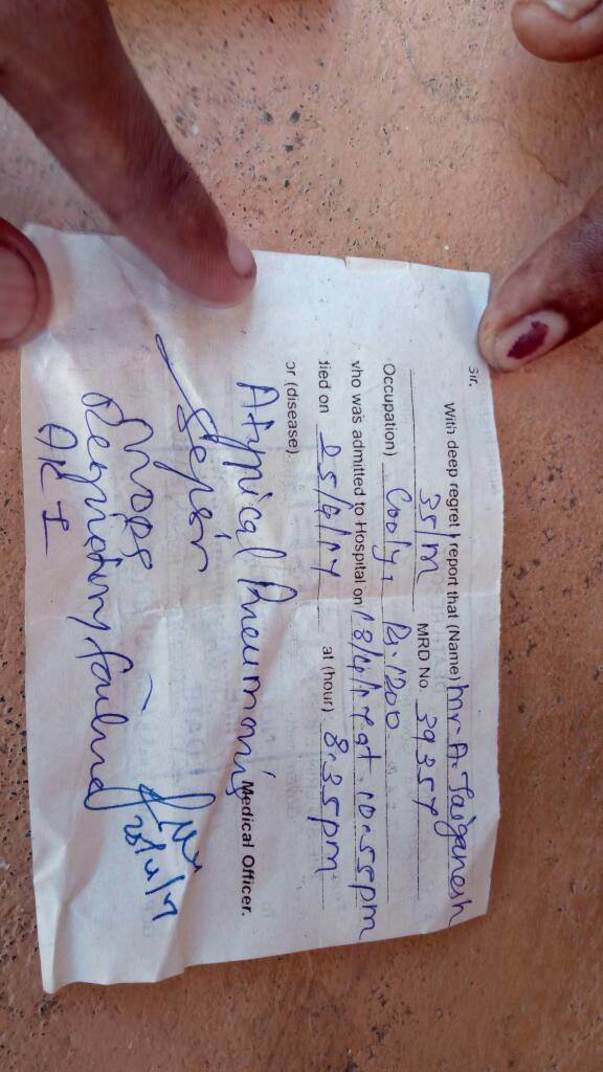 Sir,
With deep regret I report that (Name) Mr A. Jaiganesh
35/M MRD No. 39357
Occupation) Cooly, Rs. 1200
who was admitted to Hospital on 18/4/17 at 10-55pm
died on 25/4/17 at (hour) 8.35pm
or (disease).
Medical Officer.
Atypical Pneumonia
Sepsis
Respiratory failure
AKI